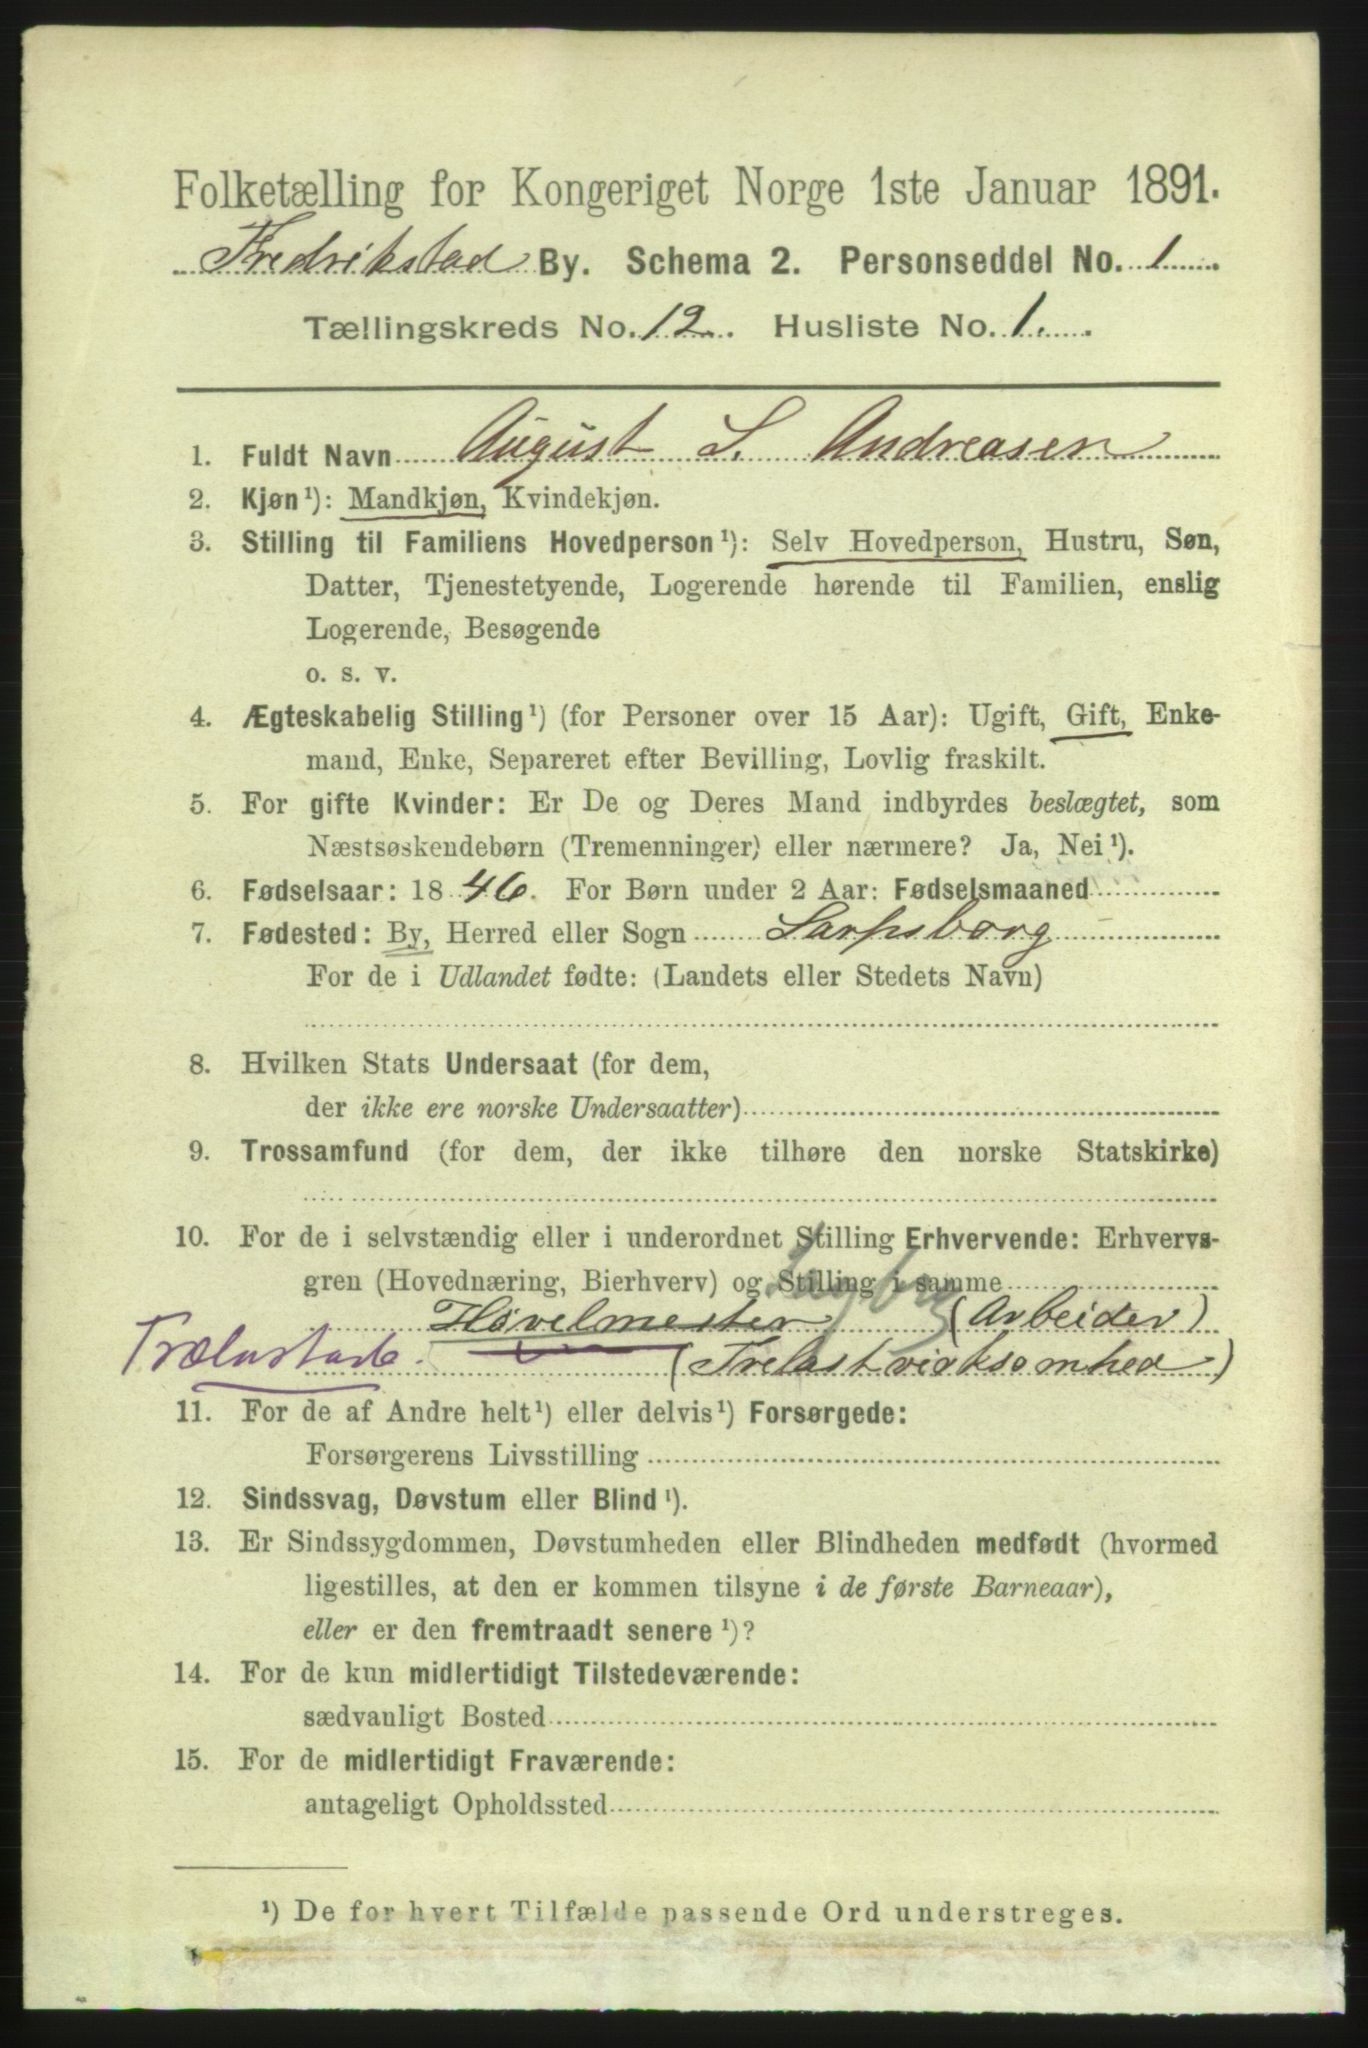 Folketælling for Kongeriget Norge 1ste Januar 1891.
Fredrikstad By. Schema 2. Personseddel No. 1
Tællingskreds No. 12. Husliste No. 1.
1. Fuldt Navn August S. Andreasen
2. Kjøn¹): Mandkjøn, Kvindekjøn.
3. Stilling til Familiens Hovedperson¹): Selv Hovedperson, Hustru, Søn,
Datter, Tjenestetyende, Logerende hørende til Familien, enslig
Logerende, Besøgende
o. s. v.
4. Ægteskabelig Stilling¹) (for Personer over 15 Aar): Ugift, Gift, Enke-
mand, Enke, Separeret efter Bevilling, Lovlig fraskilt.
5. For gifte Kvinder: Er De og Deres Mand indbyrdes beslægtet, som
Næstsøskendebørn (Tremenninger) eller nærmere? Ja, Nei¹).
6. Fødselsaar: 1846. For Børn under 2 Aar: Fødselsmaaned
7. Fødested: By, Herred eller Sogn Sarpsborg
For de i Udlandet fødte: (Landets eller Stedets Navn)
8. Hvilken Stats Undersaat (for dem,
der ikke ere norske Undersaatter)
9. Trossamfund (for dem, der ikke tilhøre den norske Statskirke)
10. For de i selvstændig eller i underordnet Stilling Erhvervende: Erhvervs-
gren (Hovednæring, Bierhverv) og Stilling i samme
Høvelmester (Arbeider)
(Trelastvirksomhed)
11. For de af Andre helt¹) eller delvis¹) Forsørgede:
Forsørgerens Livsstilling
12. Sindssvag, Døvstum eller Blind¹).
13. Er Sindssygdommen, Døvstumheden eller Blindheden medfødt (hvormed
ligestilles, at den er kommen tilsyne i de første Barneaar),
eller er den fremtraadt senere¹)?
14. For de kun midlertidigt Tilstedeværende:
sædvanligt Bosted
15. For de midlertidigt Fraværende:
antageligt Opholdssted
¹) De for hvert Tilfælde passende Ord understreges.